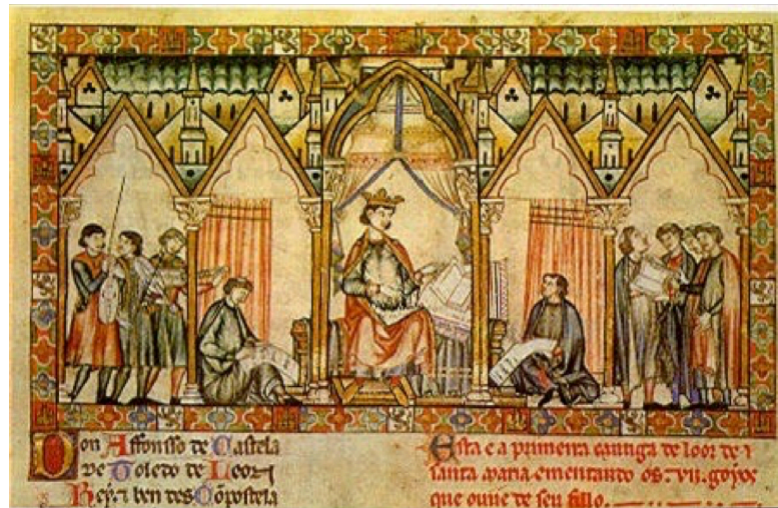 Don Affonsso de Castela
de Toledo de Leon
Rey ⁊ ben des Cõpostela
Esta e a primeira cantiga de loor de
santa maria ementando os .vii. goyos
que ouue de seu fillo.